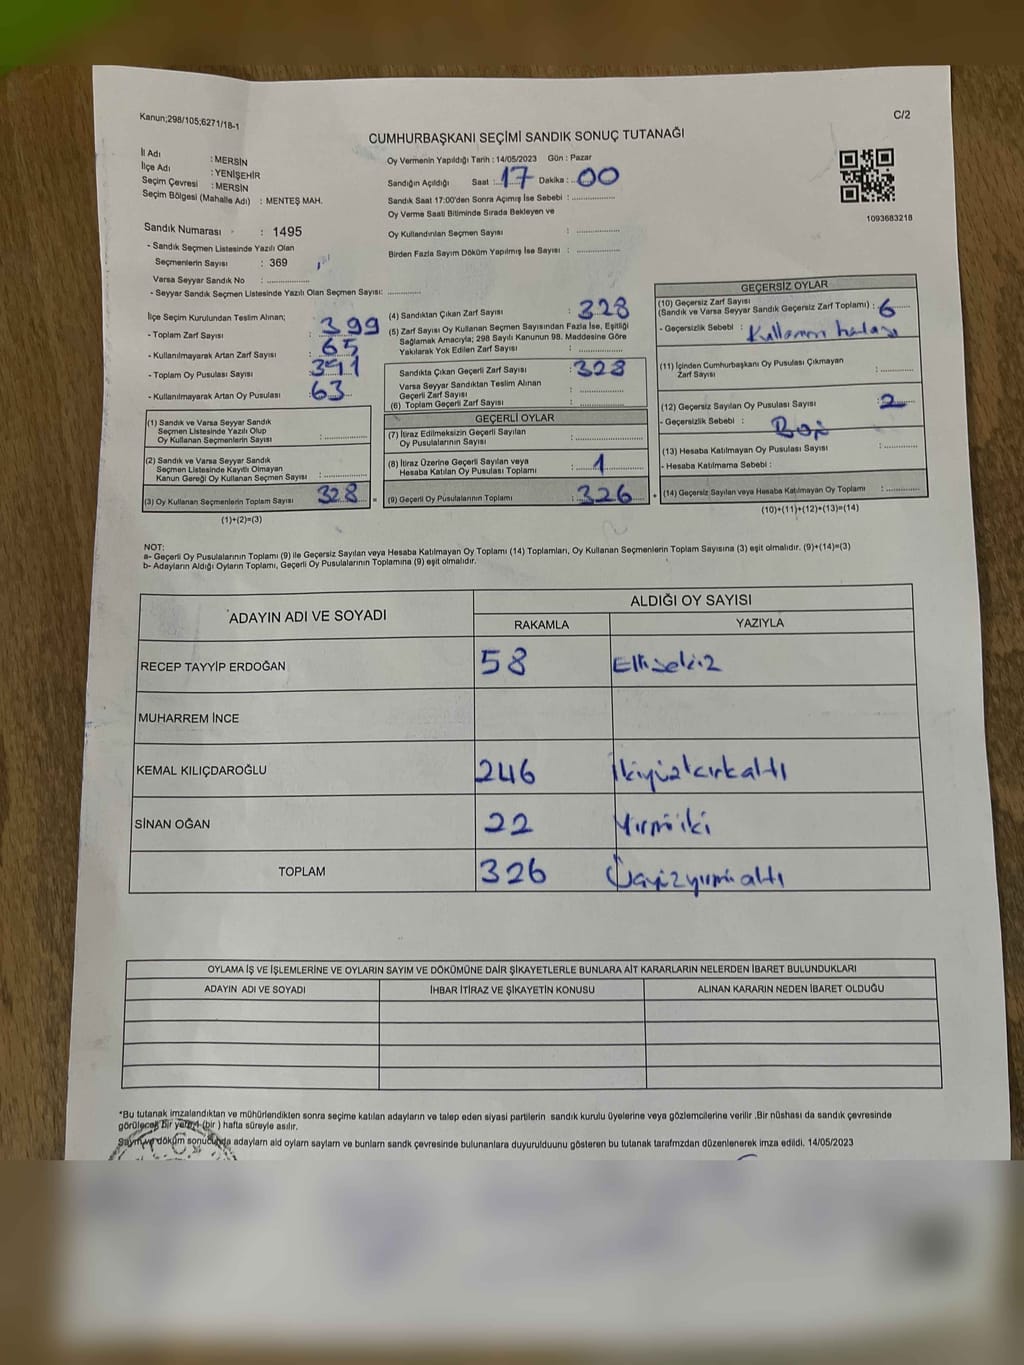 Kanun;298/105;6271/18-1
C/2
CUMHURBAŞKANI SEÇİMİ SANDIK SONUÇ TUTANAĞI
İl Adı : MERSİN
İlçe Adı : YENİŞEHİR
Seçim Çevresi : MERSİN
Seçim Bölgesi (Mahalle Adı) : MENTEŞ MAH.
Oy Vermenin Yapıldığı Tarih : 14/05/2023 Gün : Pazar
Sandığın Açıldığı Saat : 17 Dakika : 00
Sandık Saat 17:00'den Sonra Açımış İse Sebebi :
Oy Verme Saati Bitiminde Sırada Bekleyen ve
Oy Kullandırılan Seçmen Sayısı :
Birden Fazla Sayım Döküm Yapılmış İse Sayısı :
1093683218
Sandık Numarası : 1495
- Sandık Seçmen Listesinde Yazılı Olan
Seçmenlerin Sayısı : 369
Varsa Seyyar Sandık No :
- Seyyar Sandık Seçmen Listesinde Yazılı Olan Seçmen Sayısı:
İlçe Seçim Kurulundan Teslim Alınan;
- Toplam Zarf Sayısı : 399
- Kullanılmayarak Artan Zarf Sayısı : 65
- Toplam Oy Pusulası Sayısı : 391
- Kullanılmayarak Artan Oy Pusulası : 63
(1) Sandık ve Varsa Seyyar Sandık
Seçmen Listesinde Yazılı Olup
Oy Kullanan Seçmenlerin Sayısı :
(2) Sandık ve Varsa Seyyar Sandık
Seçmen Listesinde Kayıtlı Olmayan
Kanun Gereği Oy Kullanan Seçmen Sayısı :
(3) Oy Kullanan Seçmenlerin Toplam Sayısı : 328 =
(1)+(2)=(3)
(4) Sandıktan Çıkan Zarf Sayısı : 328
(5) Zarf Sayısı Oy Kullanan Seçmen Sayısından Fazla İse, Eşitliği
Sağlamak Amacıyla; 298 Sayılı Kanunun 98. Maddesine Göre
Yakılarak Yok Edilen Zarf Sayısı :
Sandıkta Çıkan Geçerli Zarf Sayısı : 328
Varsa Seyyar Sandıktan Teslim Alınan
Geçerli Zarf Sayısı :
(6) Toplam Geçerli Zarf Sayısı :
GEÇERLİ OYLAR
(7) İtiraz Edilmeksizin Geçerli Sayılan
Oy Pusulalarının Sayısı :
(8) İtiraz Üzerine Geçerli Sayılan veya
Hesaba Katılan Oy Pusulası Toplamı : 1
(9) Geçerli Oy Pusulalarının Toplamı : 326
GEÇERSİZ OYLAR
(10) Geçersiz Zarf Sayısı
(Sandık ve Varsa Seyyar Sandık Geçersiz Zarf Toplamı) : 6
- Geçersizlik Sebebi : Kullanım hatası
(11) İçinden Cumhurbaşkanı Oy Pusulası Çıkmayan
Zarf Sayısı :
(12) Geçersiz Sayılan Oy Pusulası Sayısı : 2
- Geçersizlik Sebebi : Boş
(13) Hesaba Katılmayan Oy Pusulası Sayısı :
- Hesaba Katılmama Sebebi :
(14) Geçersiz Sayılan veya Hesaba Katılmayan Oy Toplamı :
(10)+(11)+(12)+(13)=(14)
NOT:
a- Geçerli Oy Pusulalarının Toplamı (9) ile Geçersiz Sayılan veya Hesaba Katılmayan Oy Toplamı (14) Toplamları, Oy Kullanan Seçmenlerin Toplam Sayısına (3) eşit olmalıdır. (9)+(14)=(3)
b- Adayların Aldığı Oyların Toplamı, Geçerli Oy Pusulalarının Toplamına (9) eşit olmalıdır.
ADAYIN ADI VE SOYADI
ALDIĞI OY SAYISI
RAKAMLA YAZIYLA
RECEP TAYYİP ERDOĞAN 58 Elli sekiz
MUHARREM İNCE
KEMAL KILIÇDAROĞLU 246 İkiyüzkırkaltı
SİNAN OĞAN 22 Yirmi iki
TOPLAM 326 Üçyüzyirmi altı
OYLAMA İŞ VE İŞLEMLERİNE VE OYLARIN SAYIM VE DÖKÜMÜNE DAİR ŞİKAYETLERLE BUNLARA AİT KARARLARIN NELERDEN İBARET BULUNDUKLARI
ADAYIN ADI VE SOYADI İHBAR İTİRAZ VE ŞİKAYETİN KONUSU ALINAN KARARIN NEDEN İBARET OLDUĞU
*Bu tutanak imzalandıktan ve mühürlendikten sonra seçime katılan adayların ve talep eden siyasi partilerin sandık kurulu üyelerine veya gözlemcilerine verilir .Bir nüshası da sandık çevresinde
görülecek bir yere,1 (bir ) hafta süreyle asılır.
Sayım ve döküm sonucunda adayların ald oyların sayların ve bunların sandk çevresinde bulunanlara duyurulduunu gösteren bu tutanak tarafmzdan düzenlenerek imza edildi. 14/05/2023